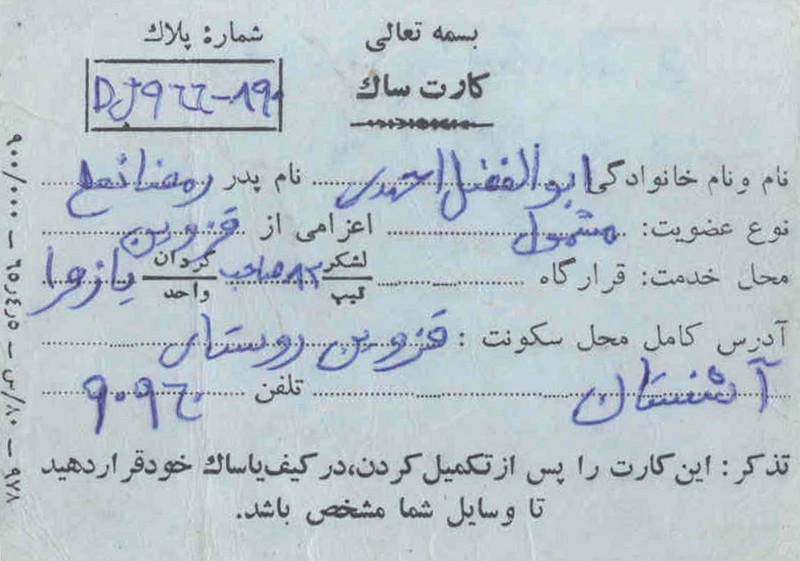 بسمه تعالی
شماره پلاك
کارت ساك
DJ۹۶۶-۱۹۱
نام و نام خانوادگی ابوالفضل احمدی نام پدر رمضانعلی
نوع عضویت: مشمول اعزامی از قزوین
محل خدمت: قرارگاه لشکر تیپ ۸۳ صاحب گردان واحد یازهرا
آدرس کامل محل سکونت: قزوین روستای
آ تلفن ۹۰۹۶۰
تذکر: این کارت را پس از تکمیل کردن، در کیف یا ساك خود قرار دهید
تا وسایل شما مشخص باشد.
۹۰۰/۰۰۰ – ۶۵٫۴٫۵ – س/۸۰ – ۹۷۸